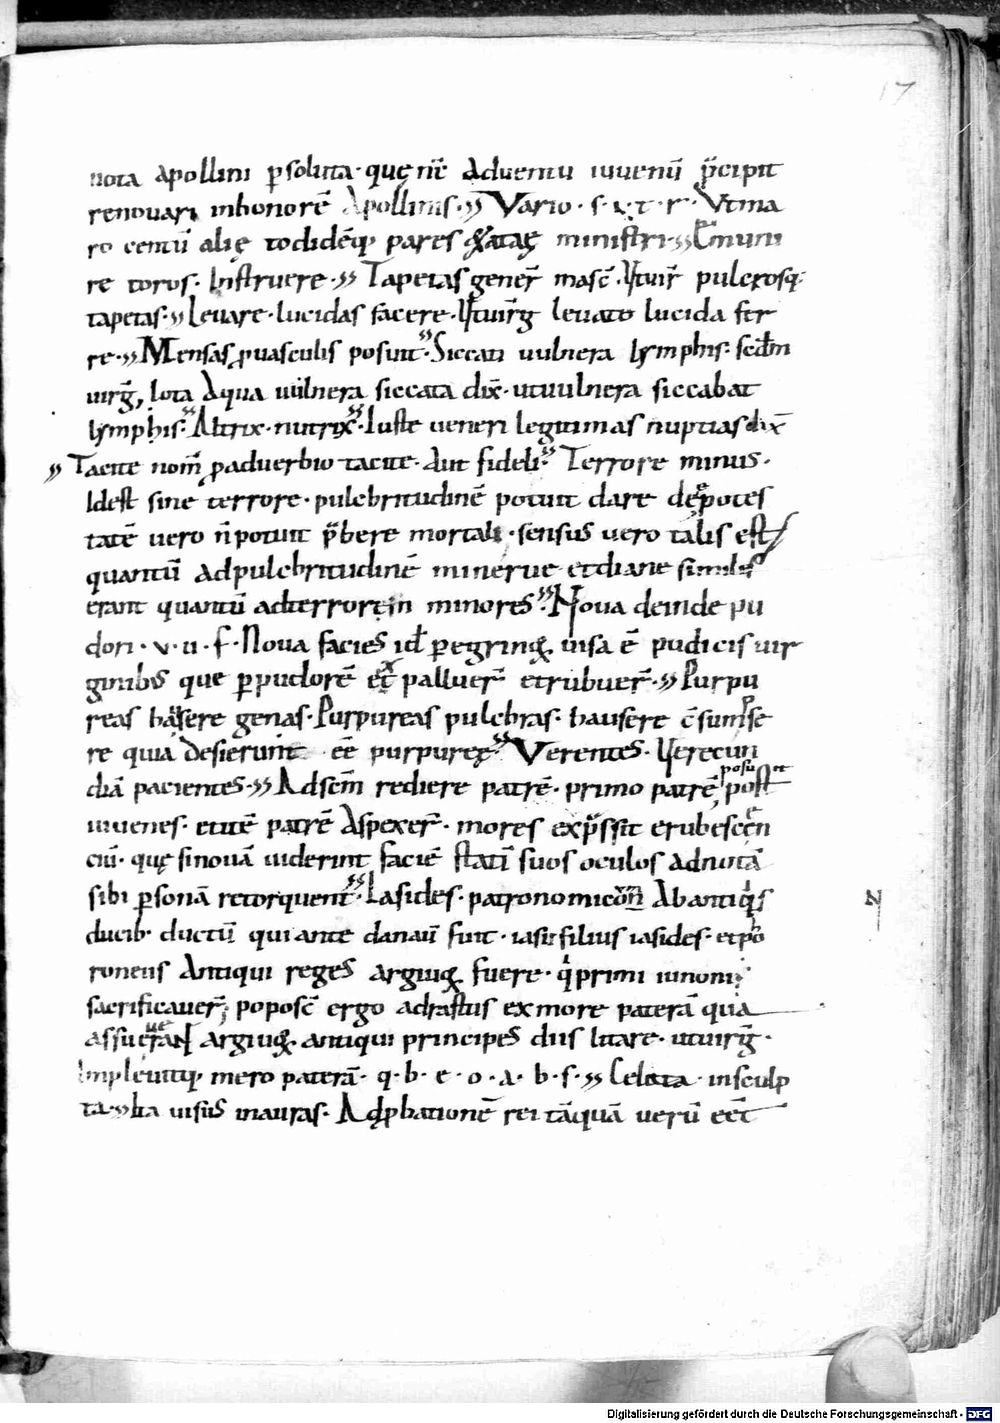 17
nota apollini p̱soluta · quę nc̄ adventu iuvenū p̄cipit
renovari inhonorē Apollinis·,, Vario · s · v · t · r · Vtina
ro centū alię todidēq; pares &ątatę ministri·,, Emuni
re toros · Instruere ·,, Tapetas gener̄ masc̄ · Vt vir̄ pulcrosq;
tapetas·,, Levare · lucidas facere · Vt virḡ levato lucida fer
re·,, Mensas ꝓ vasculis posuit·,, Siccat vulnera lymphis· secd̄m
virḡ, lota Aqua vulnera siccata dix̄ · ut vulnera siccabat
lymphis·,, Altrix · nutrix·,, Iuste veneri legitimas nuptias dix̄
,, Tacite nom̄ ꝓ adverbio tacite · Aut fideli·,, Terrore minus ·
Idest sine terrore · pulchritudinē potuit dare de potes
tatē vero n̄ potuit p̄bere mortali · sensus vero talis est
quantū ad pulchritudinē minerve et diane similes
erant quantū ad terrorem minores·,, Nova deinde pu
dori · v · u · f · Nova facies id̄ peregrinę visa ē pudicis vir
ginibus que p̱ pudorē et palluer̄ et rubuer̄·,, Purpu
reas hausere genas · Purpureas pulchras · hausere c̄sumpse
re quia desierunt eē purpuree·,, Verentes · Verecun
diā pacientes·,, Ad scm̄ rediere patrē · primo patrē post
posu et
iuvenes · et itē patrē Aspexer̄ · mores exp̄ssit erubescen
ciū · quę si novā viderint faciē statī suos oculos ad notā
sibi p̱sonā retorquent·,, Iasides · patronomicon Ab antiqis
ducib· ductū qui ante danaū fuit · iasii filius iasides · et pho
N
roneus Antiqui reges argivoꝝ fuere · qi primi iunoni
sacrificaver̄; poposc̄ ergo adrastus ex more paterā qua
assueverant argivoꝝ · antiqui principes diis litare · ut virḡ ·
Implevitq; mero paterā · q · b · e · o · a · b · s ·,, Celata · insculp
ta·,, Ita visus in auras · Ad ꝓbationē rei tāquā verū eēt
Digitalisierung gefördert durch die Deutsche Forschungsgemeinschaft - DFG